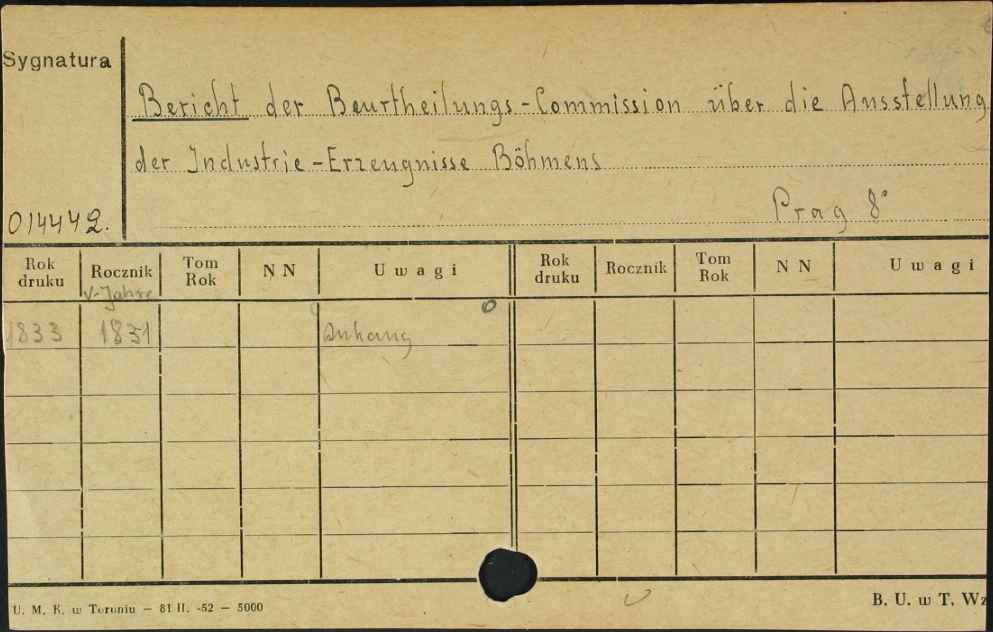 Sygnatura
Bericht der Beurtheilungs-Commission über die Ausstellung
der Industrie-Erzeugnisse Böhmens
014442.
Prag 8°
Rok druku Rocznik Tom Rok N N Uwagi Rok druku Rocznik Tom Rok N N Uwagi
v. Jahre
1833 1831 Anhang
U. M. K. w Toruniu — 81 II. -52 — 5000
B. U. w T. Wz